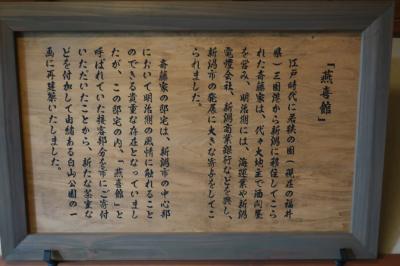 『燕喜館』
江戸時代に若狭の国(現在の福井
県)三国港から新潟に移住してこら
れた斎藤家は、代々大地主で酒問屋
を営み、明治期には、海運業や新潟
電燈会社、新潟商業銀行などを興し、
新潟市の発展に大きな寄与をしてこ
られました。
斎藤家の邸宅は、新潟市の中心部
において明治期の風情に触れること
のできる貴重な存在となっていまし
たが、この邸宅の内、「燕喜館」と
呼ばれていた接客部分を市にご寄付
いただいたことから、新たな茶室な
どを付加して由緒ある白山公園の一
画に再建築いたしました。